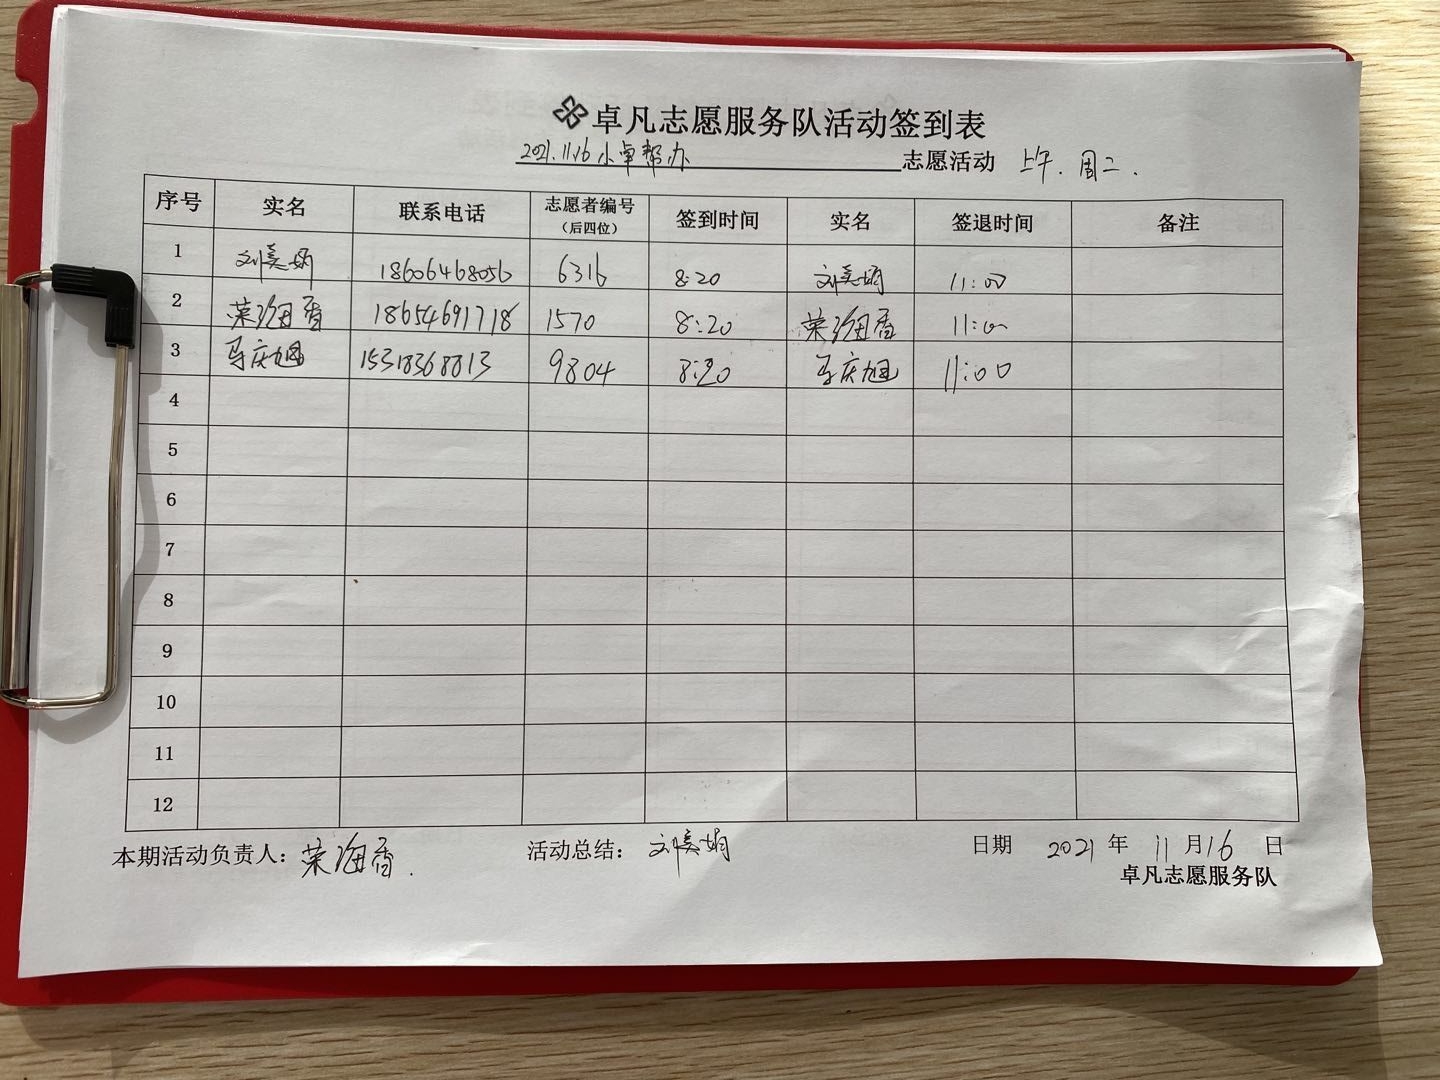 卓凡志愿服务队活动签到表
2021.11.16 小卓帮办 志愿活动 上午. 周二.
序号 实名 联系电话 志愿者编号（后四位） 签到时间 实名 签退时间 备注
1 刘美娟 18606468056 6316 8:20 刘美娟 11:00
2 荣海香 18654691718 1570 8:20 荣海香 11:00
3 马庆旭 15318368813 9804 8:20 马庆旭 11:00
4
5
6
7
8
9
10
11
12
本期活动负责人：荣海香. 活动总结：刘美娟 日期 2021 年 11 月 16 日
卓凡志愿服务队